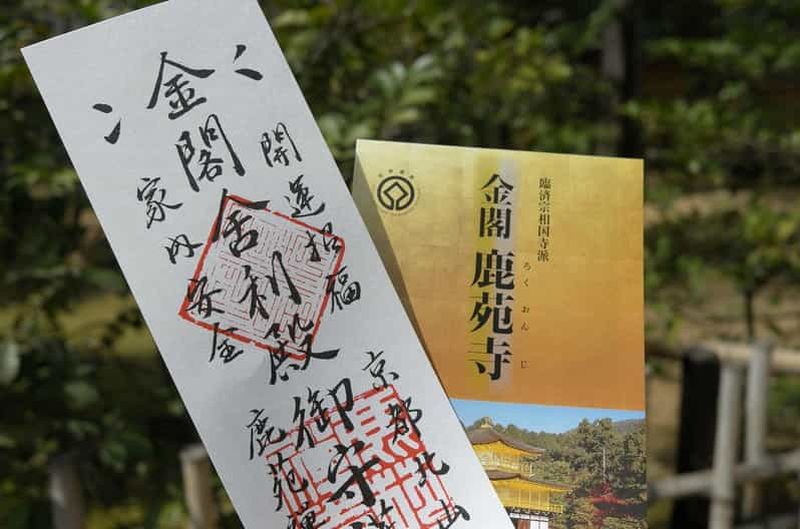 開運招福
金閣舎利殿御守
家内安全
京都北山
鹿苑
臨済宗相国寺派
金閣 鹿苑寺
ろく おん じ